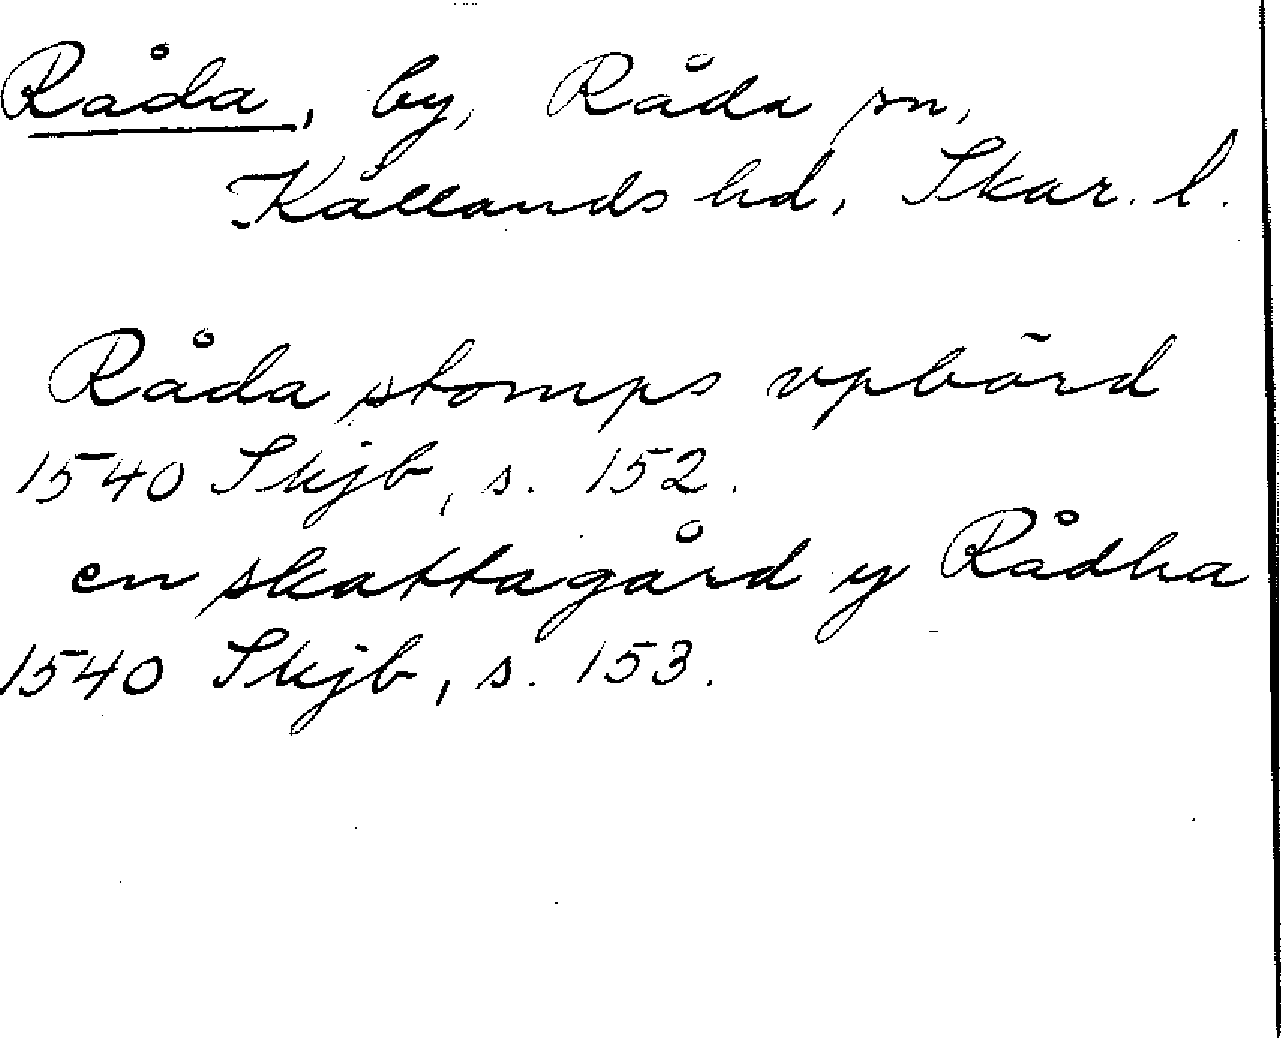 Råda, by, Råda sn,
Kållands hd, Skar. l.
Råda stomps vpbörd
1540 Skjb, s. 152.
en skattagård y Rådha
1540 Skjb, s. 153.